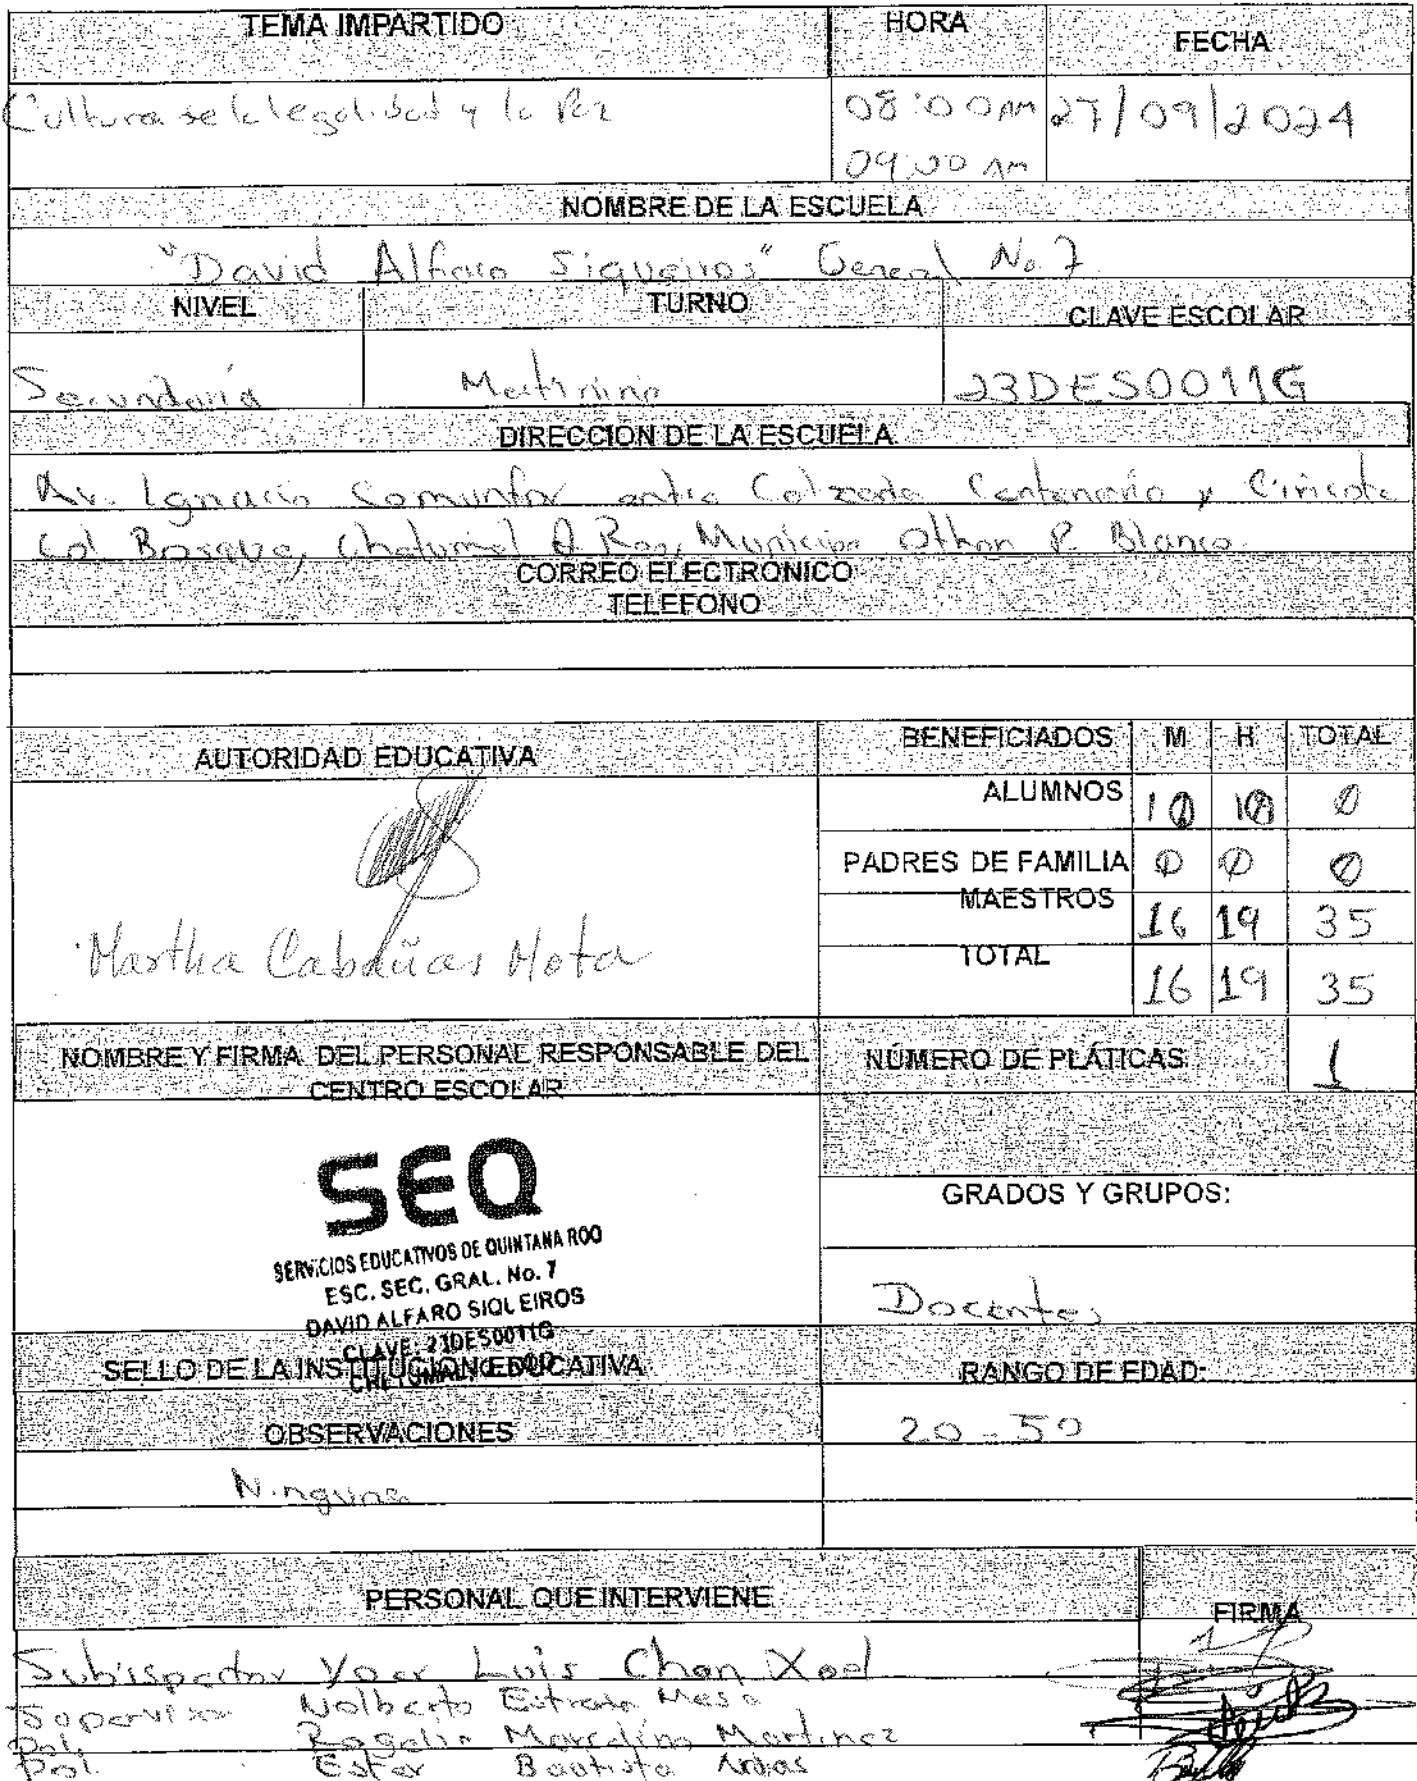 TEMA IMPARTIDO HORA FECHA
Cultura se la legalidad y la Paz 08:00 AM 27/09/2024
09:00 AM
NOMBRE DE LA ESCUELA
"David Alfaro Siqueiros" General No. 7
NIVEL TURNO CLAVE ESCOLAR
Secundaria Matinino 23DES0011G
DIRECCION DE LA ESCUELA
Av. Ignacio Comonfor entre Calzada Centenario y Ciricote
Col. Bosque, Chetumal Q. Roo, Municipio Othon P. Blanco.
CORREO ELECTRONICO
TELEFONO
AUTORIDAD EDUCATIVA BENEFICIADOS M H TOTAL
ALUMNOS 0
PADRES DE FAMILIA 0 0 0
MAESTROS 16 19 35
Martha Cabañas Mota
TOTAL 16 19 35
NOMBRE Y FIRMA DEL PERSONAL RESPONSABLE DEL
CENTRO ESCOLAR
NÚMERO DE PLÁTICAS 1
SEQ
SERVICIOS EDUCATIVOS DE QUINTANA ROO
ESC. SEC. GRAL. No. 7
DAVID ALFARO SIQUEIROS
CLAVE: 23DES0011G
GRADOS Y GRUPOS:
Docentes
SELLO DE LA INSTITUCION EDUCATIVA RANGO DE EDAD:
OBSERVACIONES 20 - 50
Ninguna
PERSONAL QUE INTERVIENE FIRMA
Subispector Yoer Luis Chan Xool
Sopervisor Nolberto Estrada Mesa
Pol. Rogelio Marcelino Martinez
Pol. Ester Bautista